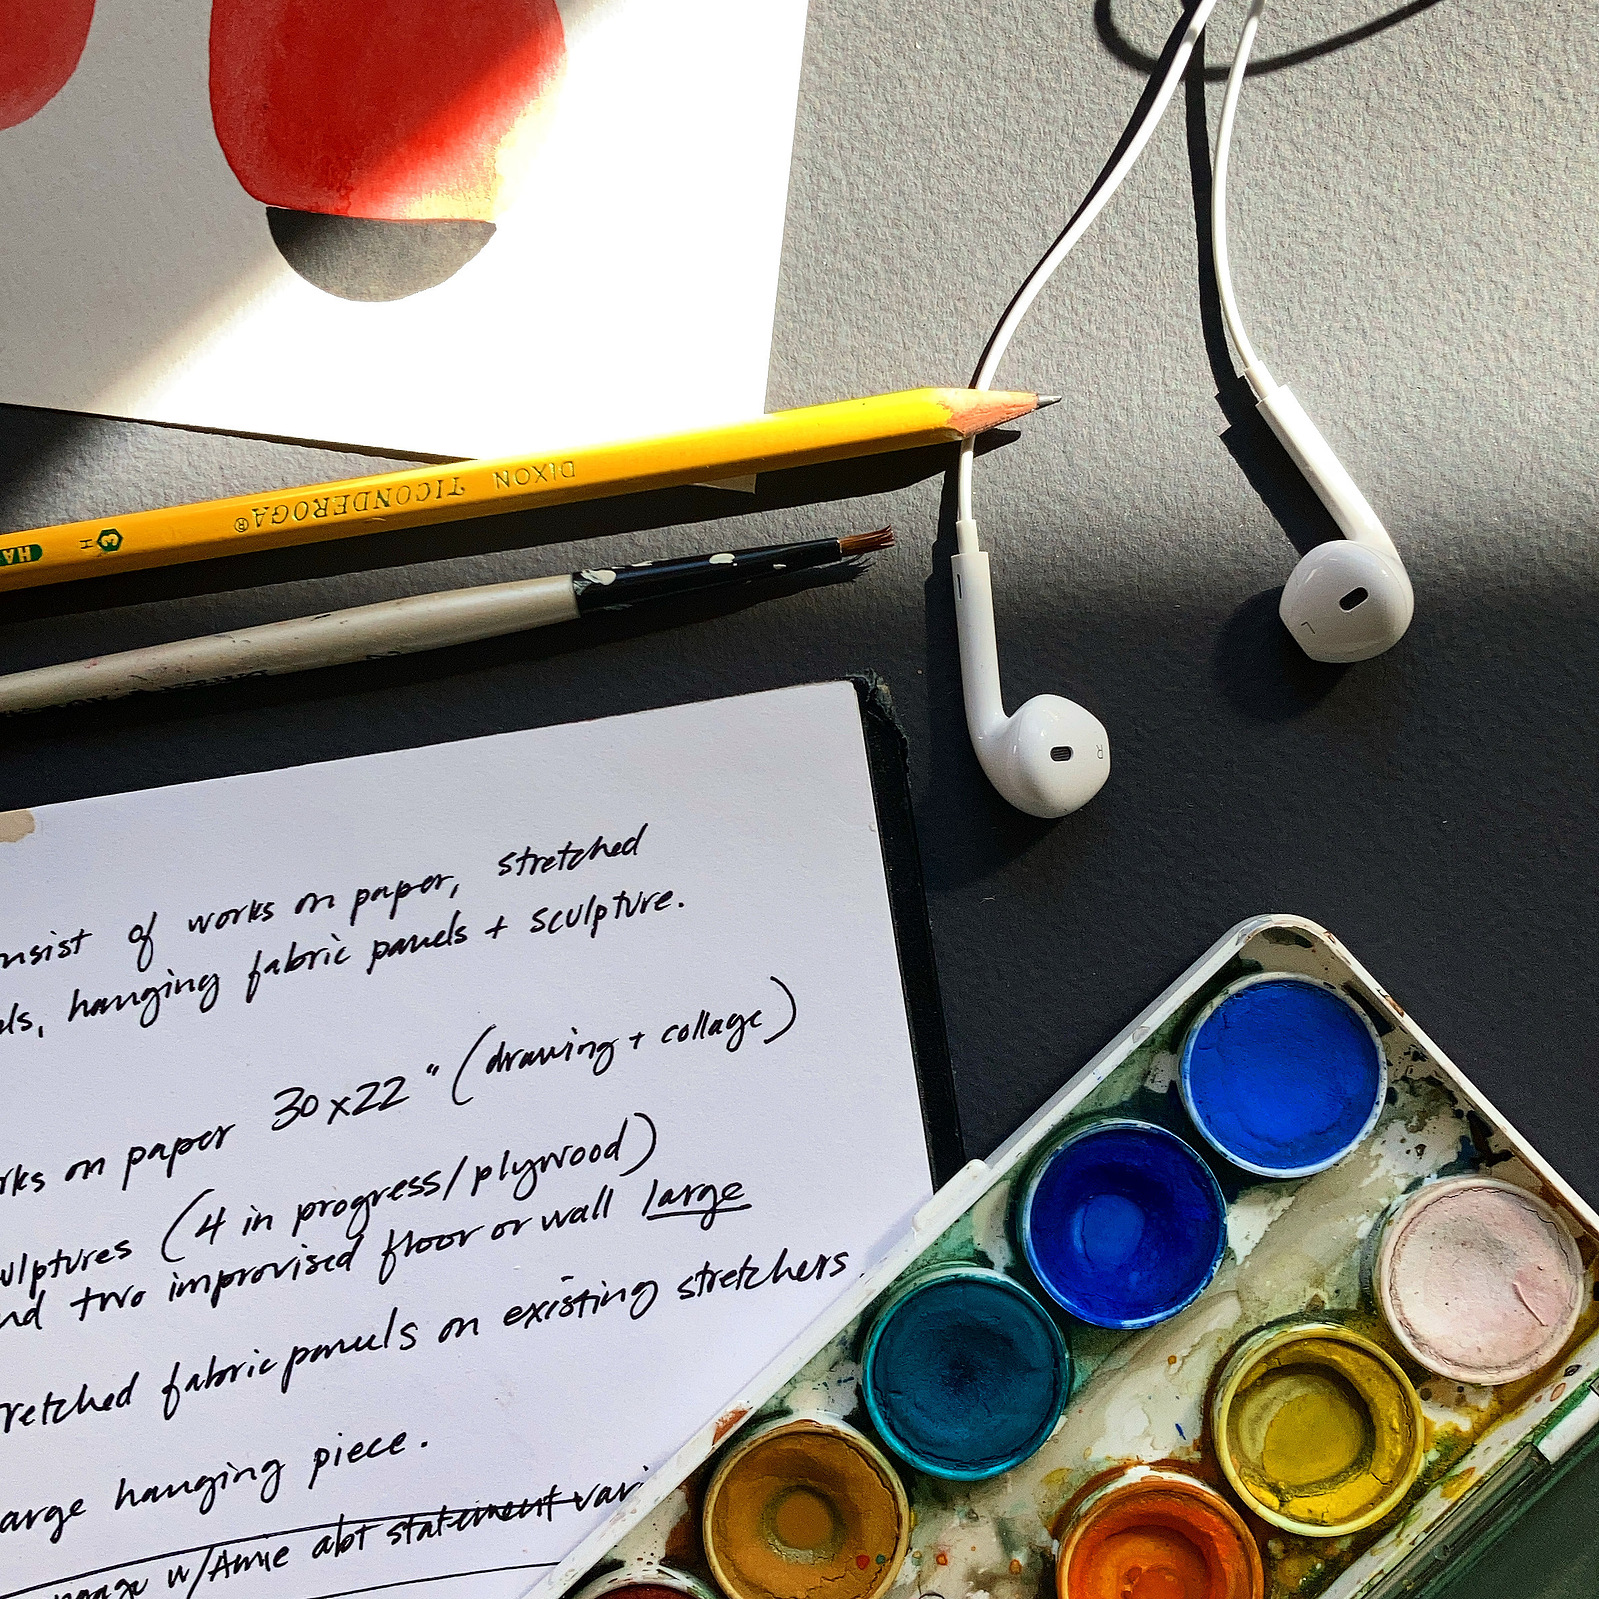 DIXON TICONDEROGA®
H
HA
L
R
nsist of works on paper, stretched
ls, hanging fabric panels + sculpture.
rks on paper 30x22" (drawing + collage)
ulptures (4 in progress/plywood)
nd two improvised floor or wall large
retched fabric panels on existing stretchers
arge hanging piece.
w/Amie abt statement vari